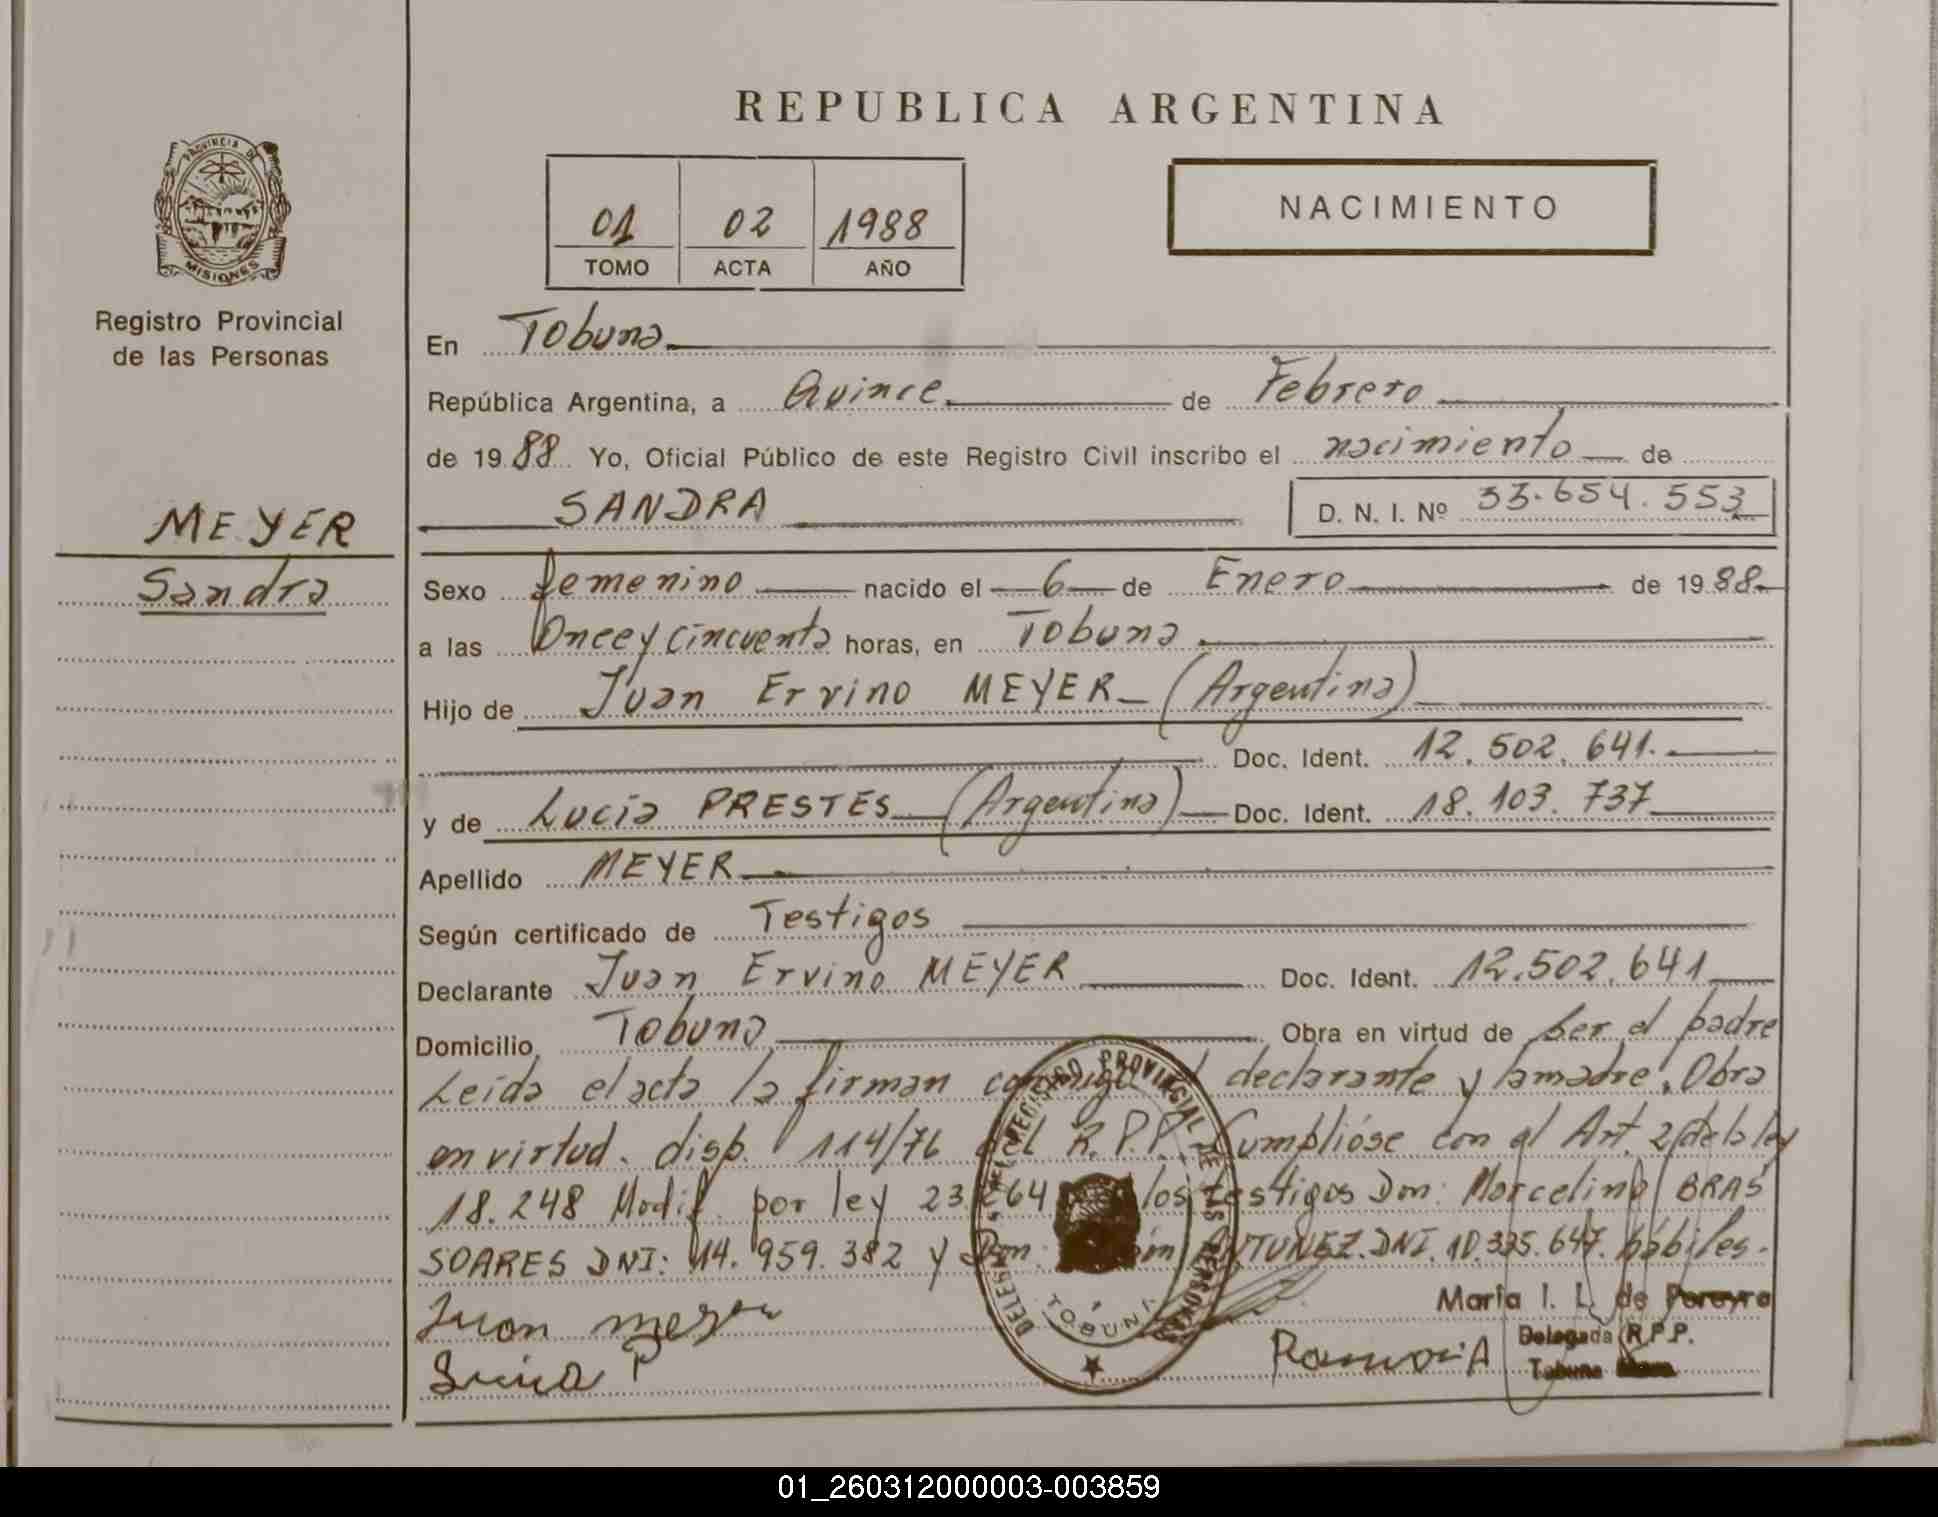 REPUBLICA ARGENTINA
PROVINCIA DE
MISIONES
Registro Provincial
de las Personas
01 02 1988
TOMO ACTA AÑO
NACIMIENTO
MEYER
Sandra
En Tobuna
República Argentina, a Quince de Febrero
de 1988 Yo, Oficial Público de este Registro Civil inscribo el nacimiento de
SANDRA D. N. I. Nº 33.654.553
Sexo femenino nacido el 6 de Enero de 1988
a las Once y cincuenta horas, en Tobuna
Hijo de Juan Ervino MEYER (Argentina)
Doc. Ident. 12.502.641.
y de Lucía PRESTES (Argentina) Doc. Ident. 18.103.737
Apellido MEYER
Según certificado de Testigos
Declarante Juan Ervino MEYER Doc. Ident. 12.502.641
Domicilio Tobuna Obra en virtud de ser el padre
Leída el acta la firman conmigo el declarante y la madre. Obra
en virtud. disp. 114/76 del R.P.P. Cumplióse con el Art. 2 de la ley
18.248 Modif. por ley 23.264 los testigos Don: Marcelino BRAS
SOARES DNI: 14.959.382 y Don: ANTUNEZ. DNI. 10.335.647. hábiles.
Juan meyer
Lucia P
Ramon A
DELEGACION DEL REGISTRO PROVINCIAL DE LAS PERSONAS
TOBUNA
Maria I. L. de Pereyra
Delegada R.P.P.
Tobuna
01_260312000003-003859